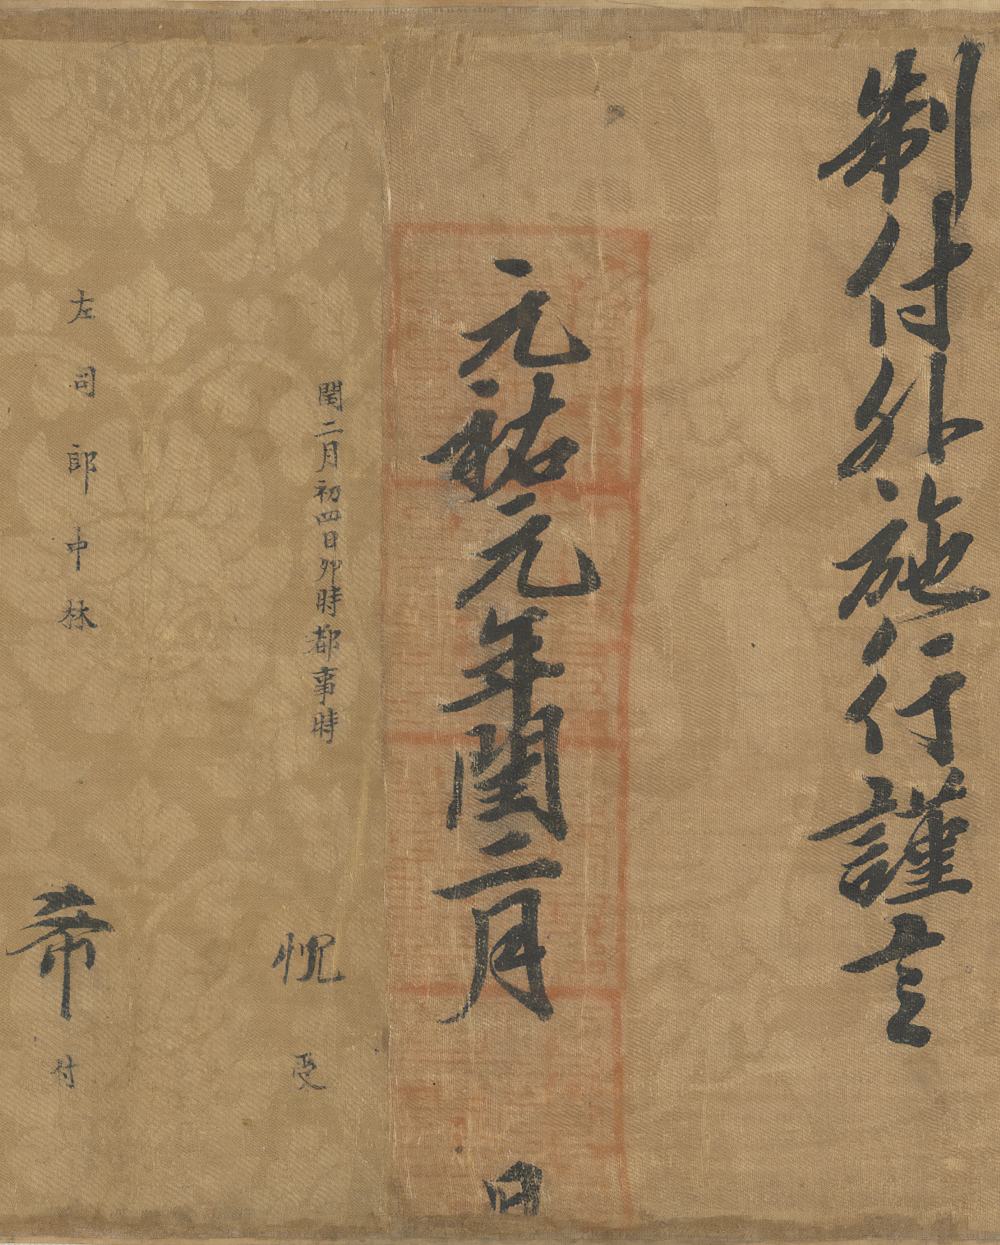 制付外施行謹言
元祐元年閏二月日
閏二月初四日卯時都事時悅受
左司郎中林希付